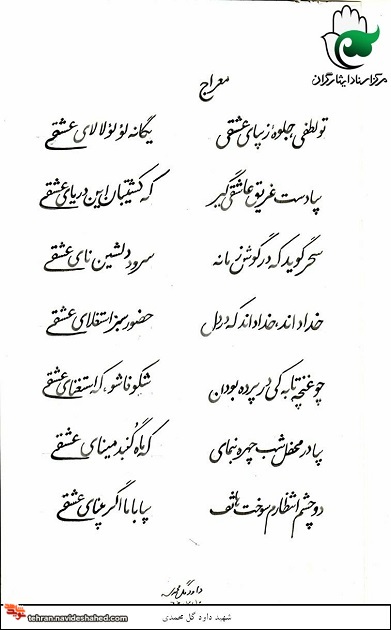 مرکز اسناد ایثارگران
معراج
تو لطفی، جلوهٔ زیبای عشقی یگانه لؤلؤ لالای عشقی
بیا دست غریق عاشقی گیر که کشتیبان این دریای عشقی
سحر گوید که در گوش زمانه سرود دلنشین نای عشقی
خدا داند، خدا داند که در دل حضور سبز استغنای عشقی
چو غنچه تا به کی در پرده بودن شکوفا شو، که استغنای عشقی
بیا در محفل شب چهره بنمای که ماه گنبد مینای عشقی
دو چشم انتظارم سوخت بیا با ما اگر عشقی
داود گل محمدی
شهید داود گل محمدی
tehran.navideshahed.com